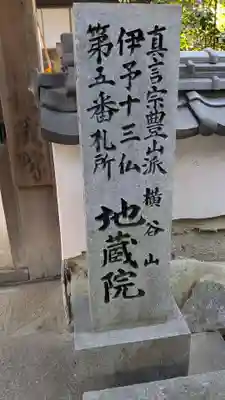 真言宗豊山派 横谷山
伊予十三仏
第五番札所
地蔵院